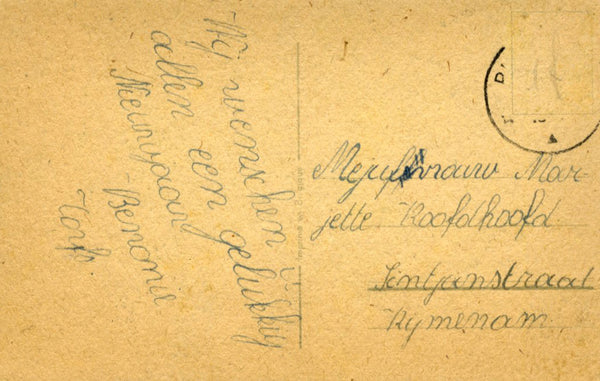 Wij wenschen U
allen een gelukkig
Nieuwjaar
- Benonie
Torfs
Mejufvrouw Mar-
jette Hoofdhoofd
Sintjanstraat
Rymenam